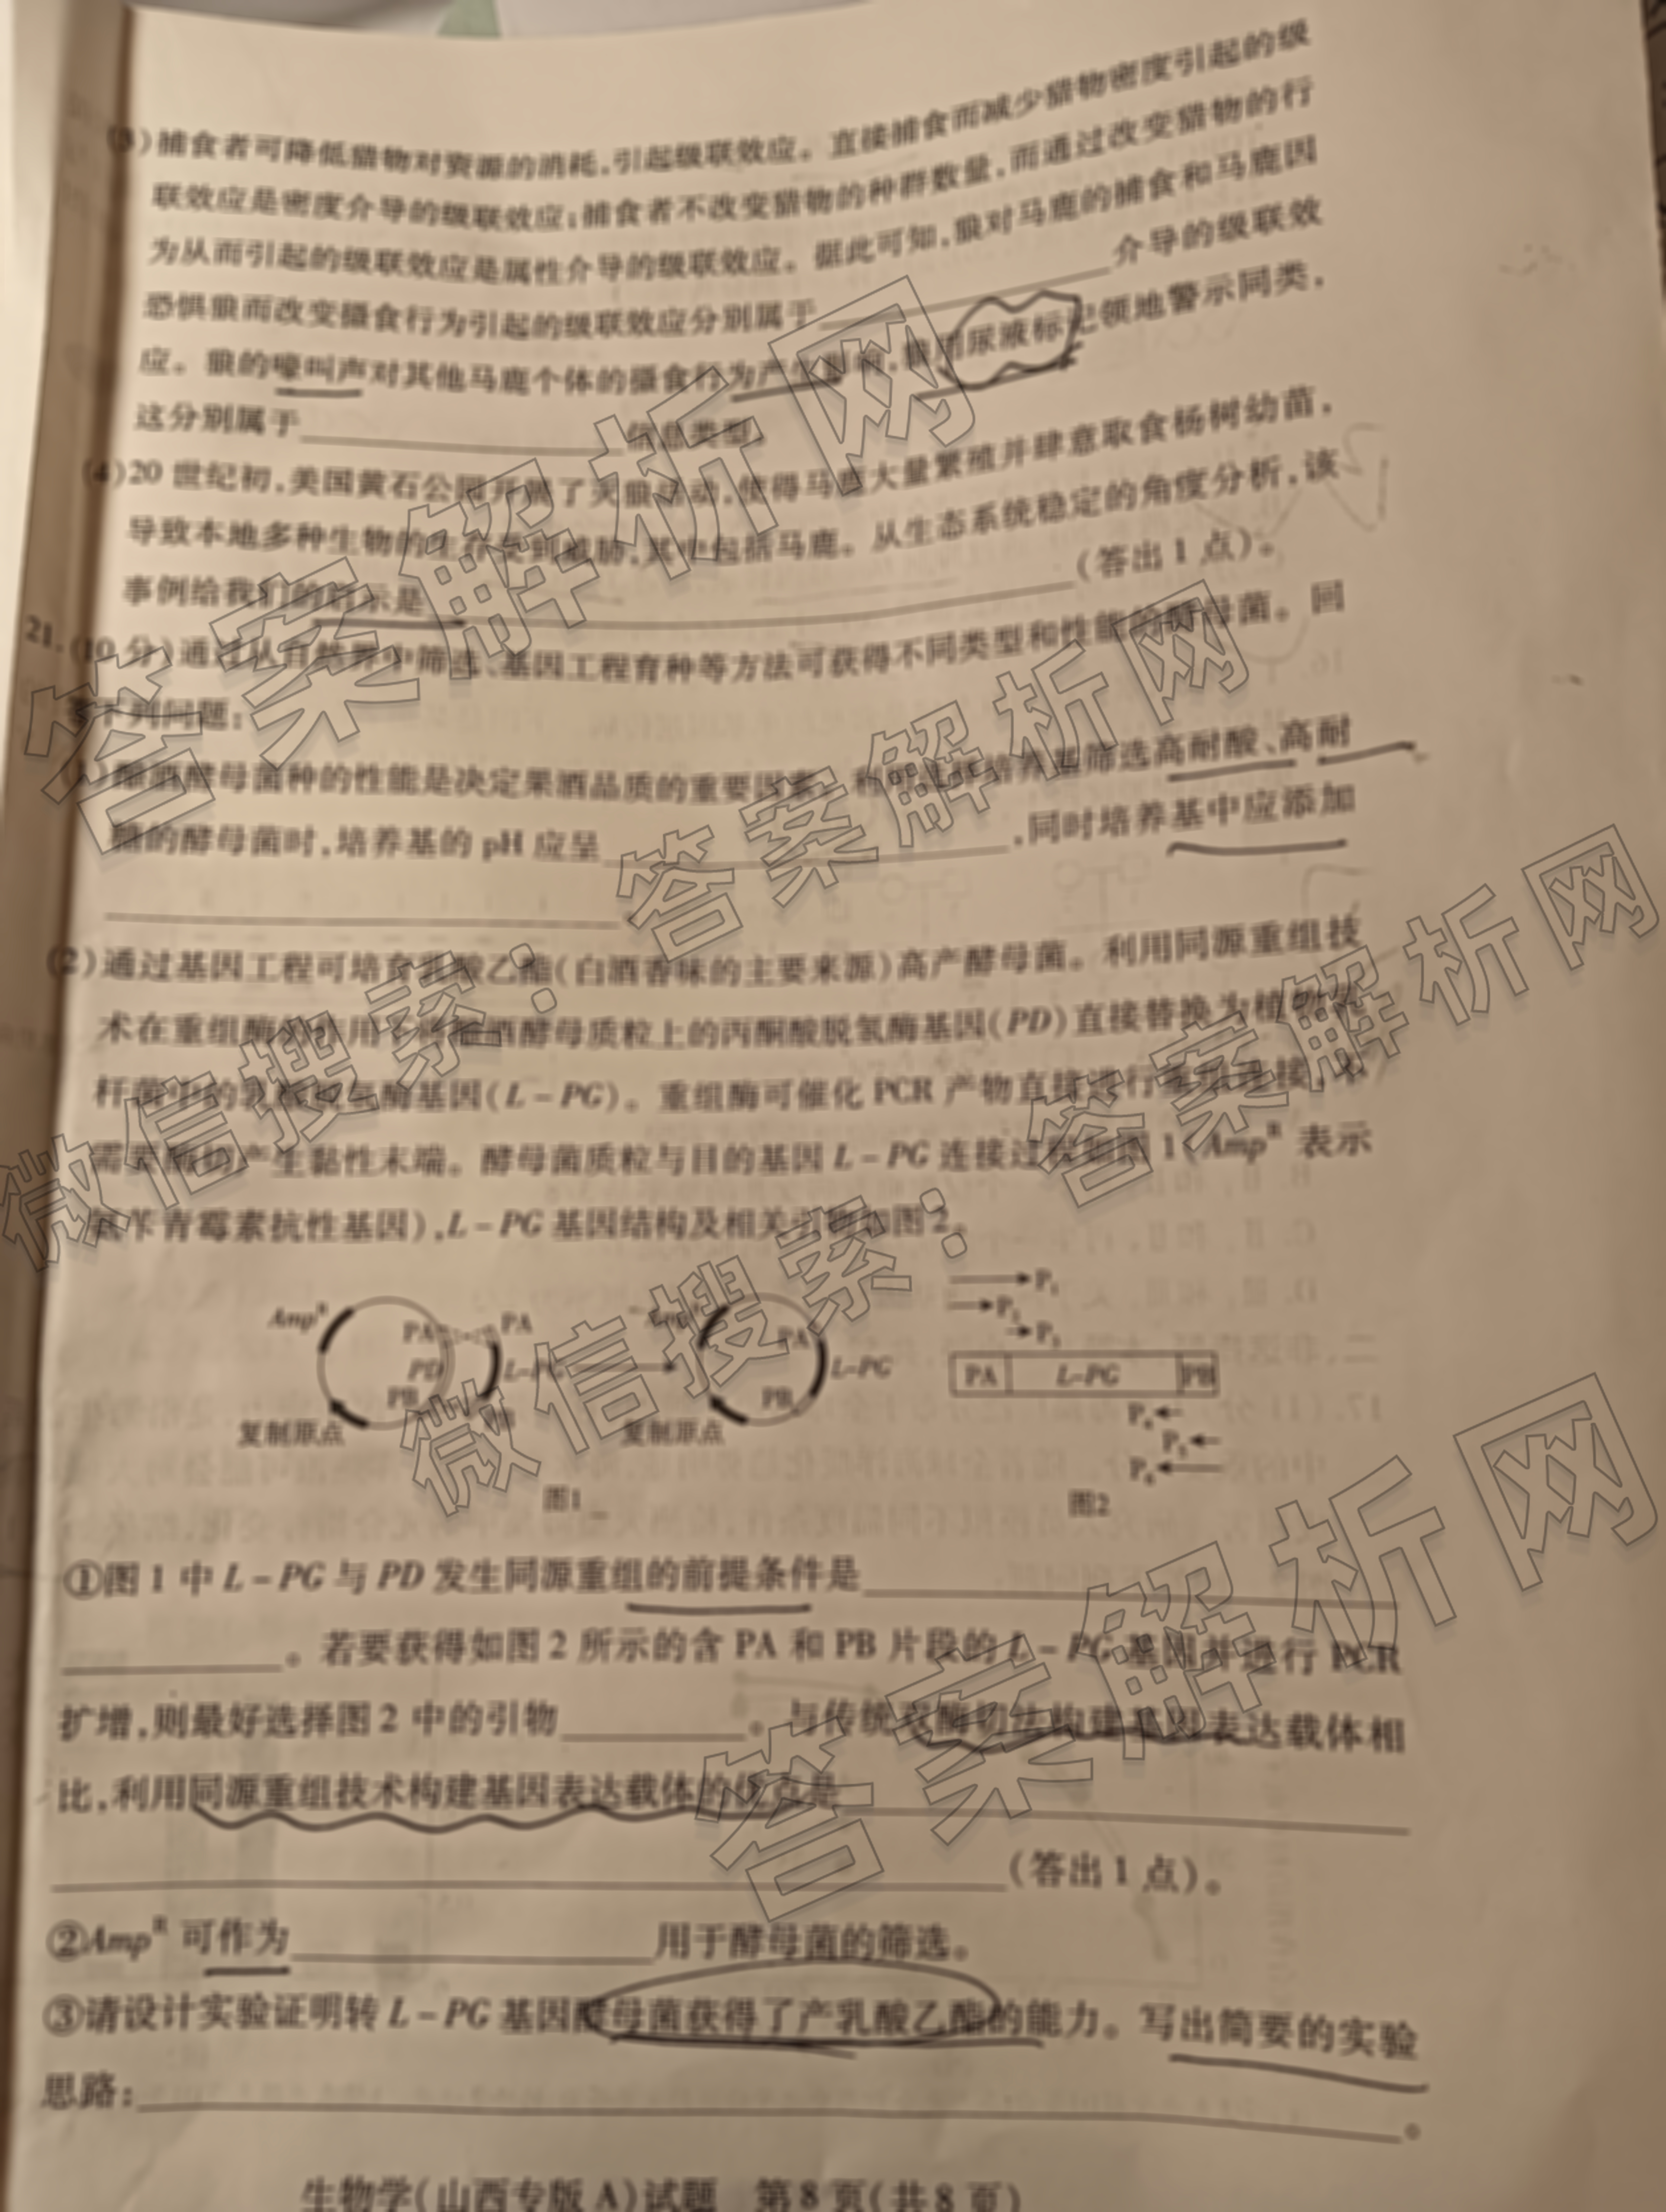 (3)捕食者可降低猎物对资源的消耗,引起级联效应。直接捕食而减少猎物密度引起的级
联效应是密度介导的级联效应;捕食者不改变猎物的种群数量,而通过改变猎物的行
为从而引起的级联效应是属性介导的级联效应。据此可知,狼对马鹿的捕食和马鹿因
恐惧狼而改变摄食行为引起的级联效应分别属于介导的级联效
应。狼的嚎叫声对其他马鹿个体的摄食行为产生影响,狼用尿液标记领地警示同类,
这分别属于信息类型。
(4)20世纪初,美国黄石公园开展了灭狼活动,使得马鹿大量繁殖并肆意取食杨树幼苗,
导致本地多种生物的生存受到威胁,其中包括马鹿。从生态系统稳定的角度分析,该
事例给我们的启示是(答出1点)。
21.(10分)通过从自然界中筛选、基因工程育种等方法可获得不同类型和性能的酵母菌。回
答下列问题:
酿酒酵母菌种的性能是决定果酒品质的重要因素。利用选择培养基筛选高耐酸、高耐
糖的酵母菌时,培养基的pH应呈,同时培养基中应添加
(2)通过基因工程可培育乳酸乙酯(白酒香味的主要来源)高产酵母菌。利用同源重组技
术在重组酶的作用下将酿酒酵母质粒上的丙酮酸脱氢酶基因(PD)直接替换为植物乳
杆菌中的乳酸脱氢酶基因(L-PG)。重组酶可催化PCR产物直接进行
需要酶切产生黏性末端。酵母菌质粒与目的基因L-PG连接过程如图1(Amp^R表示
氨苄青霉素抗性基因),L-PG基因结构及相关引物如图2。
Amp^R PA PD PB 复制原点 PA L-PG PB Amp^R PA PB L-PG 复制原点
图1
P1
P2
P3
PA L-PG PB
P4
P5
P6
图2
①图1中L-PG与PD发生同源重组的前提条件是
。若要获得如图2所示的含PA和PB片段的L-PG基因并进行PCR
扩增,则最好选择图2中的引物。与传统双酶切法构建基因表达载体相
比,利用同源重组技术构建基因表达载体的优点是
(答出1点)。
②Amp^R可作为用于酵母菌的筛选。
③请设计实验证明转L-PG基因酵母菌获得了产乳酸乙酯的能力。写出简要的实验
思路:。
生物学(山西专版A)试题 第8页(共8页)
答案解析网
微信搜索:答案解析网
微信搜索:答案解析网
答案解析网